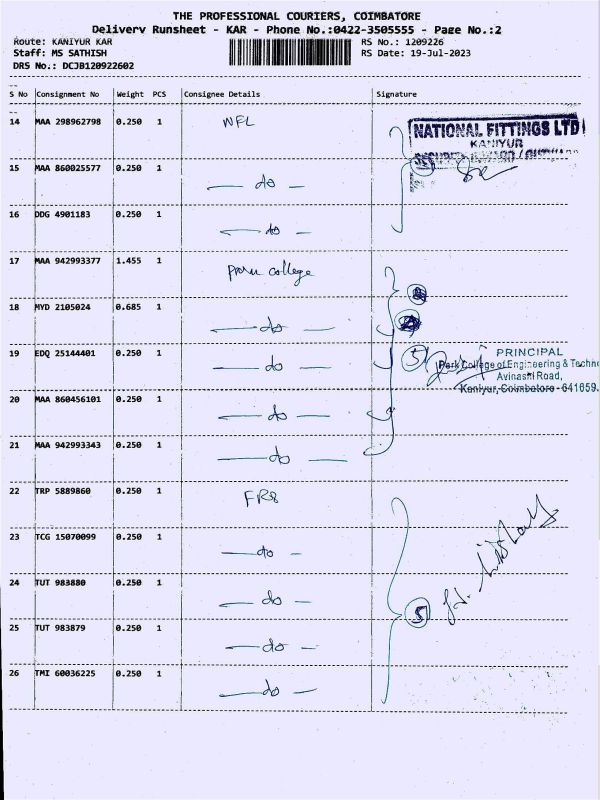 THE PROFESSIONAL COURIERS, COIMBATORE
Delivery Runsheet - KAR - Phone No.:0422-3505555 - Page No.:2
Route: KANIYUR KAR
RS No.: 1209226
Staff: MS SATHISH
RS Date: 19-Jul-2023
DRS No.: DCJB120922602
S No Consignment No Weight PCS Consignee Details Signature
14 MAA 298962798 0.250 1 NFL
NATIONAL FITTINGS LTD
KANIYUR
15 MAA 860025577 0.250 1 — do —
16 DDG 4901183 0.250 1 — do —
17 MAA 942993377 1.455 1 college
18 MYD 2105024 0.685 1 — do —
19 EDQ 25144401 0.250 1 — do — 5
PRINCIPAL
Park College of Engineering & Techno
Avinashi Road,
Kaniyur, Coimbatore - 641659.
20 MAA 860456101 0.250 1 — do —
21 MAA 942993343 0.250 1 — do —
22 TRP 5889860 0.250 1
23 TCG 15070099 0.250 1 — do —
24 TUT 983880 0.250 1 — do — 5
25 TUT 983879 0.250 1 — do —
26 TMI 60036225 0.250 1 — do —